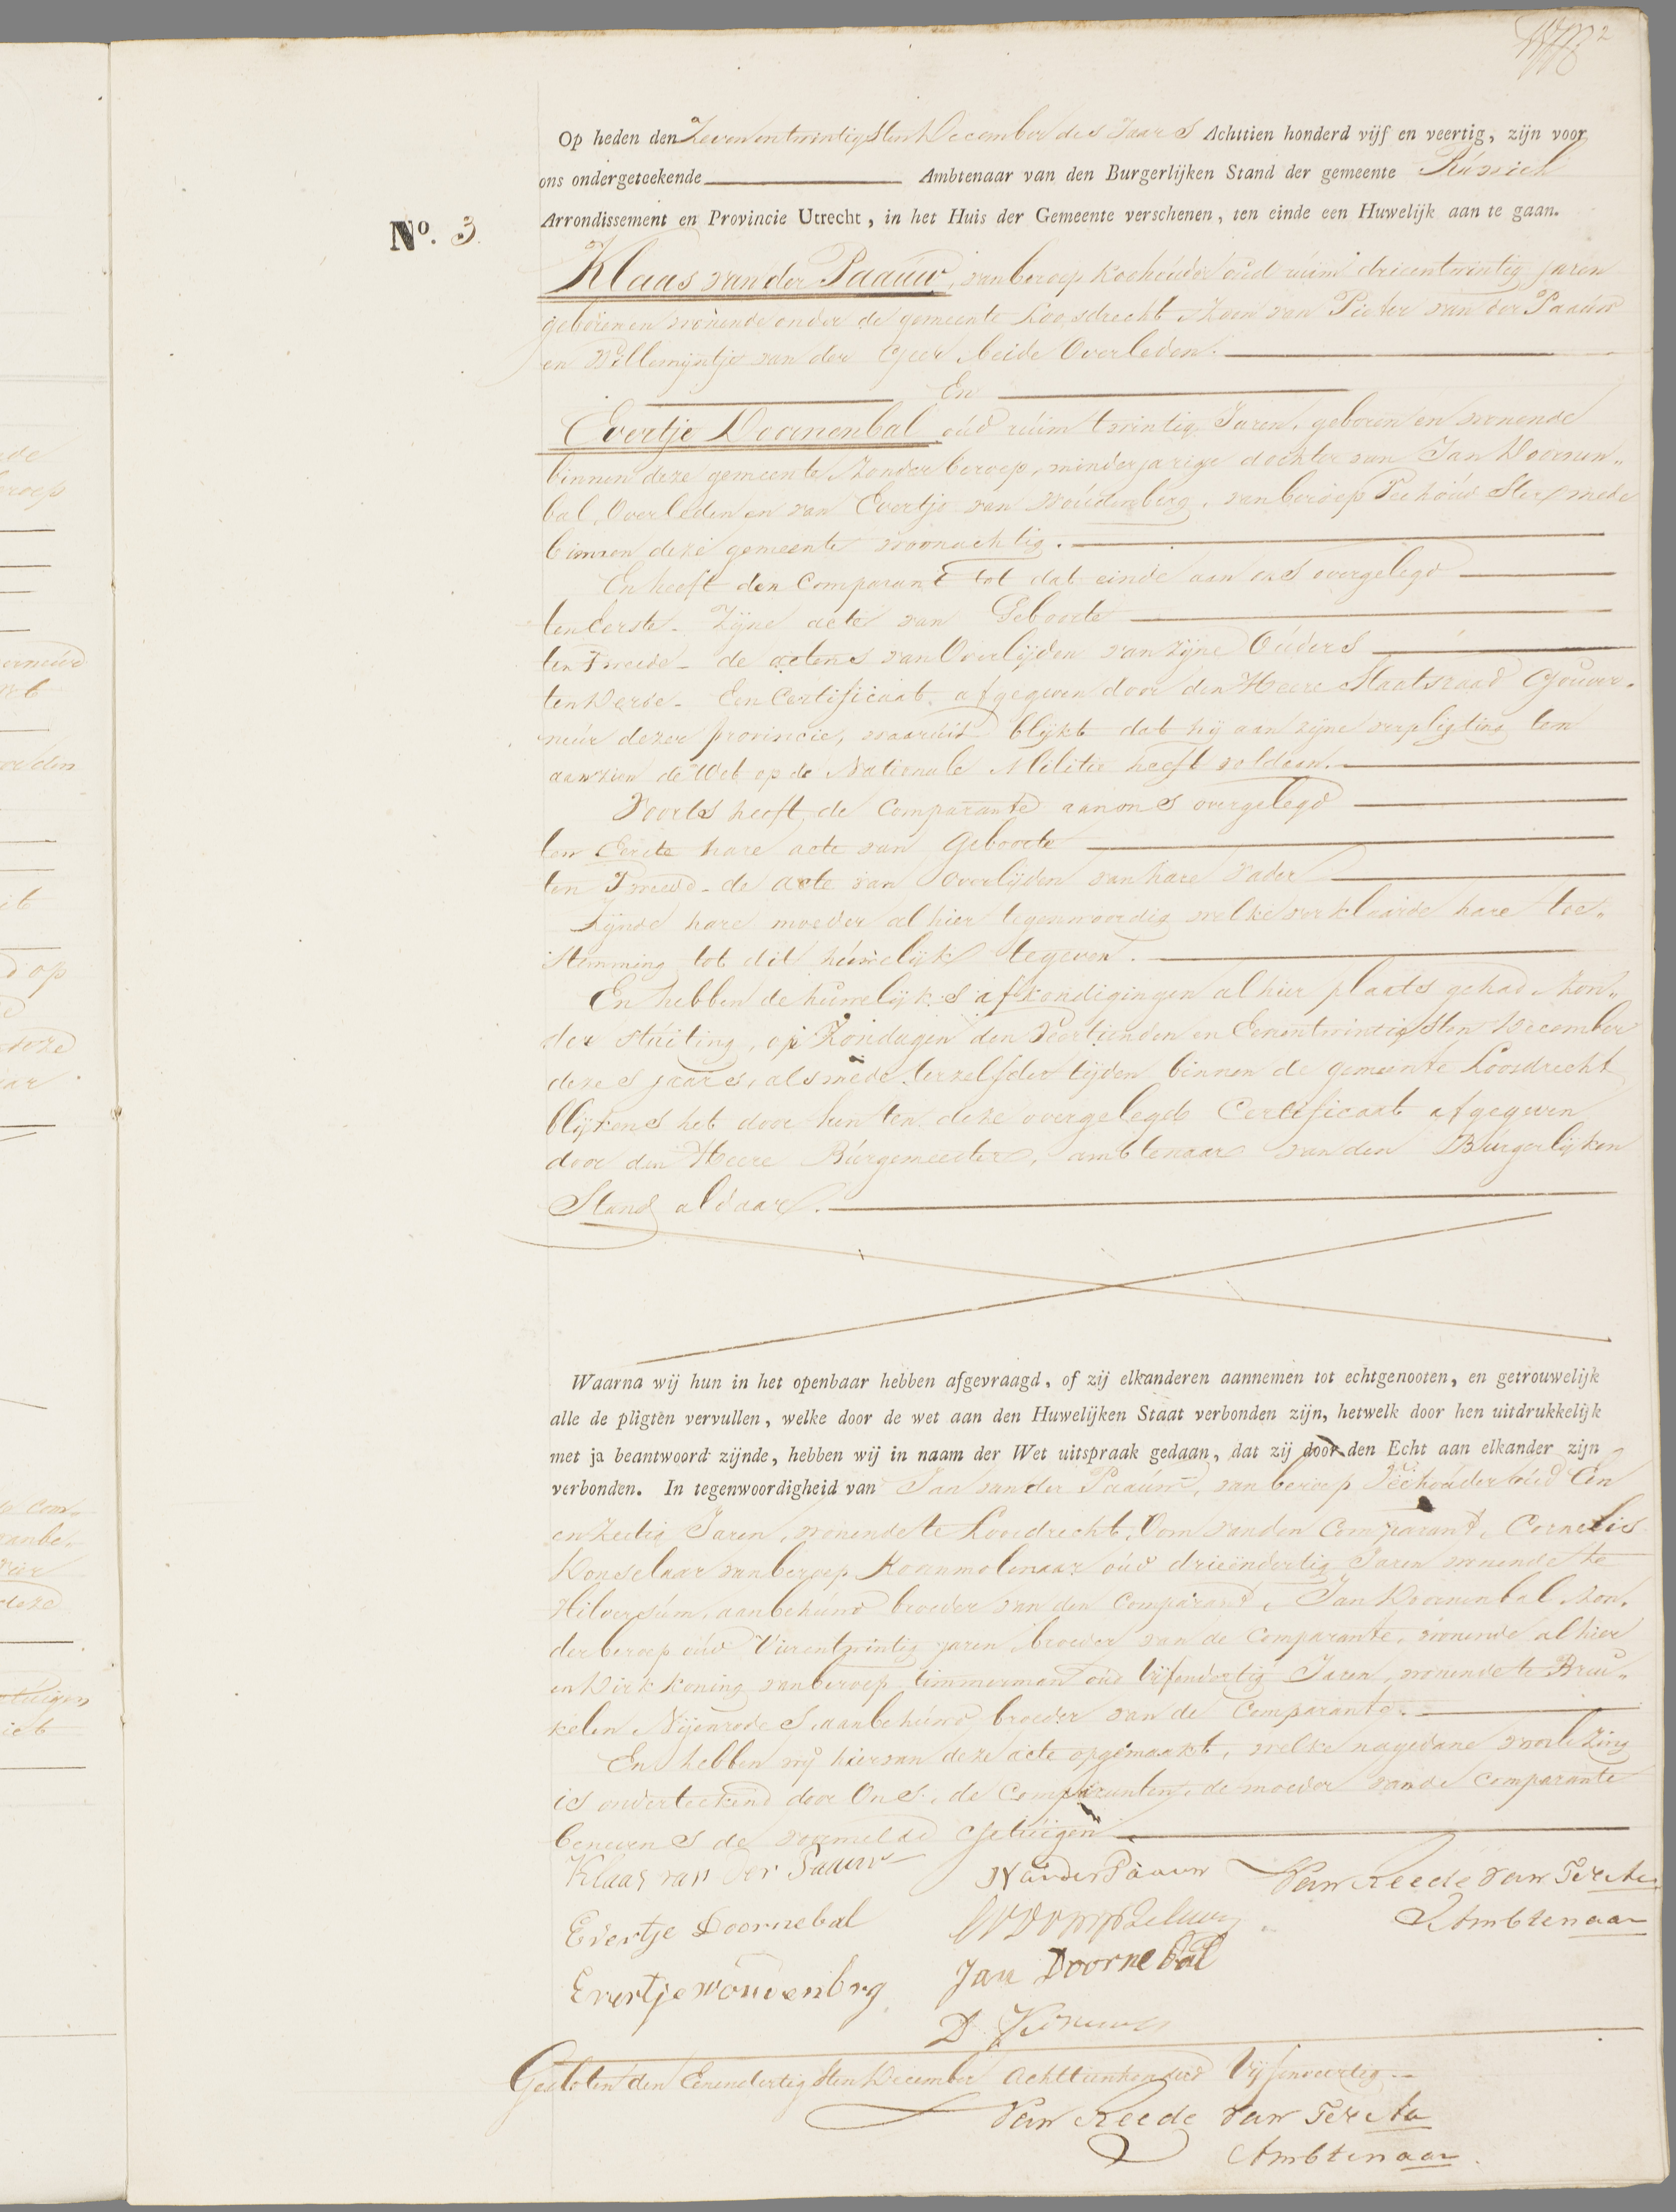 2
Op heden den Zevenentwintigsten December des Jaars Achttien honderd vijf en veertig, zijn voor
ons ondergeteekende Ambtenaar van den Burgerlijken Stand der gemeente Ruwiel
No. 3.
Arrondissement en Provincie Utrecht, in het Huis der Gemeente verschenen, ten einde een Huwelijk aan te gaan.
Klaas van der Paauw, van beroep Koehouder oud ruim drieentwintig jaren
geboren en wonende onder de gemeente Loosdrecht Zoon van Pieter van der Paauw
en Willemijntje van der Geer beide Overleden.
En
Evertje Doornenbal oud ruim twintig Jaren, geboren en wonende
binnen deze gemeente, Zonder beroep, minderjarige dochter van Jan Doornen„
bal, Overleden en van Evertje van Woudenberg, van beroep Veehoudster, mede
binnen deze gemeente woonachtig.
En heeft den Comparant tot dat einde aan ons overgelegd
ten Eerste - Zijne acte van Geboorte
ten Tweede - de actens van Overlijden van zijne Ouders
ten Derde - Een Certificaat, afgegeven door den Heere Staatsraad Gouver-
neur dezer provincie, waaruit blijkt dat hij aan zijne verpligting ten
aanzien de Wet op de Nationale Militie heeft voldaan.
Voorts heeft de Comparante aan ons overgelegd
ten Eerste hare acte van Geboorte
ten Tweede - de acte van Overlijden van hare Vader
Zijnde hare moeder alhier tegenwoordig welke verklaarde hare toe„
stemming tot dit huwelijk tegeven.
En hebben de huwelijks afkondigingen alhier plaats gehad Zon„
der stuiting, op Zondagen den Veertienden en Eenentwintigsten December
dezes jaars, alsmede terzelfder tijden binnen de gemeente Loosdrecht
blijkens het door hen ten deze overgelegd Certificaat afgegeven
door den Heere Burgemeester, ambtenaar van den Burgerlijken
Stand aldaar.
Waarna wij hun in het openbaar hebben afgevraagd, of zij elkanderen aannemen tot echtgenooten, en getrouwelijk
alle de pligten vervullen, welke door de wet aan den Huwelijken Staat verbonden zijn, hetwelk door hen uitdrukkelijk
met ja beantwoord zijnde, hebben wij in naam der Wet uitspraak gedaan, dat zij door den Echt aan elkander zijn
verbonden. In tegenwoordigheid van Jan van der Paauw, van beroep Veehouder oud Een
en Zestig Jaren, wonende te Loosdrecht, Oom van den Comparant, Cornelis
van beroep Koornmolenaar oud drieëndertig Jaren wonende te
Hilversum, aanbehuwd broeder van den Comparant, Jan Doornenbal Zon„
der beroep oud Vierentwintig jaren broeder van de Comparante, wonende alhier
en Dirk Koning van beroep timmerman oud Vijfendertig Jaren, wonende te Breu„
kelen Nijenrodes, aanbehuwd broeder van de Comparante.
En hebben wij hiervan deze acte opgemaakt, welke nagedane voorlezing
is onderteekend door Ons, de Comparanten, de moeder van de comparante
benevens de voormelde Getuigen
Klaas van der Paauw J van der Paauw Van Reede van Ter Aa
Evertje Doornebal Ambtenaar
Evertje woudenbrg Jan Doornebal
D
Gesloten den Eenendertigsten December Achttienhonderd Vijfenveertig
Van Reede van Ter Aa
Ambtenaar.